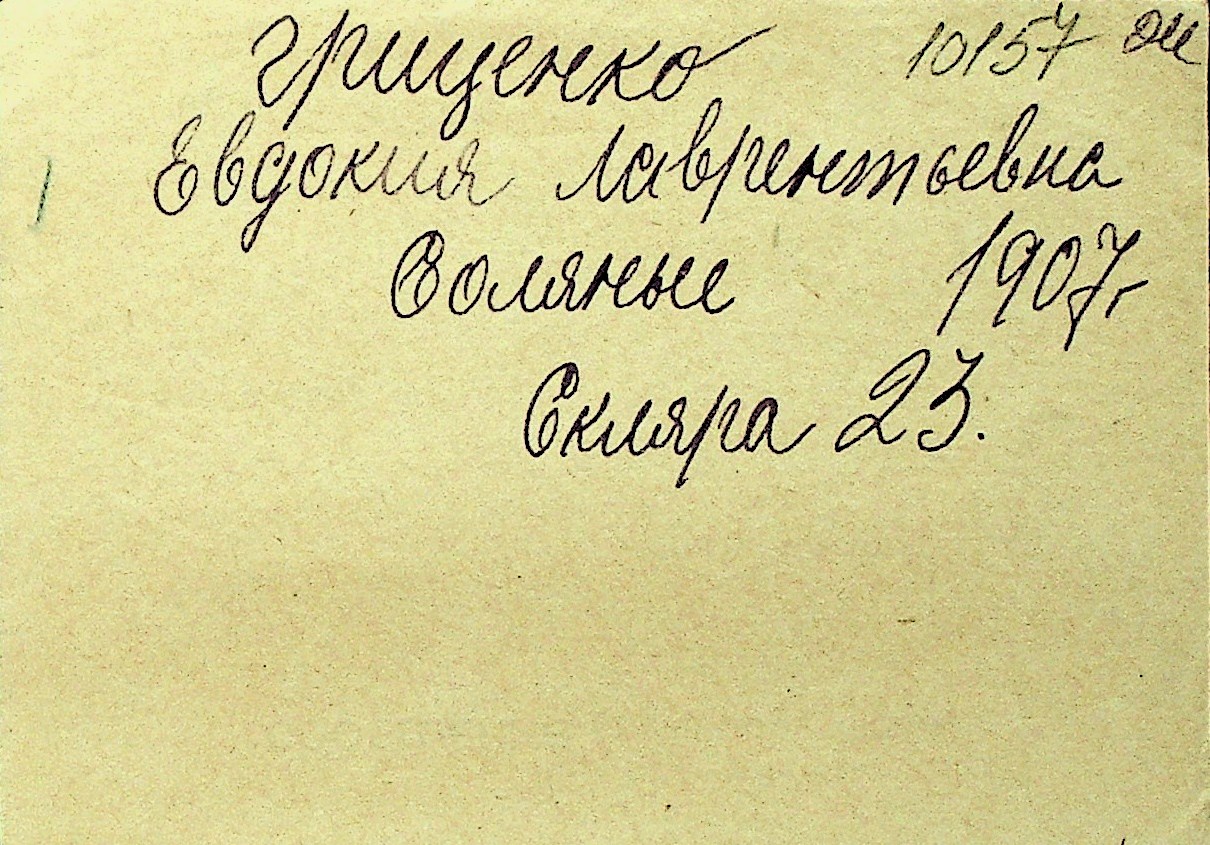 Гриценко 10157
Евдокия Лаврентьевна
Соляные 1907г
Скляра 23.